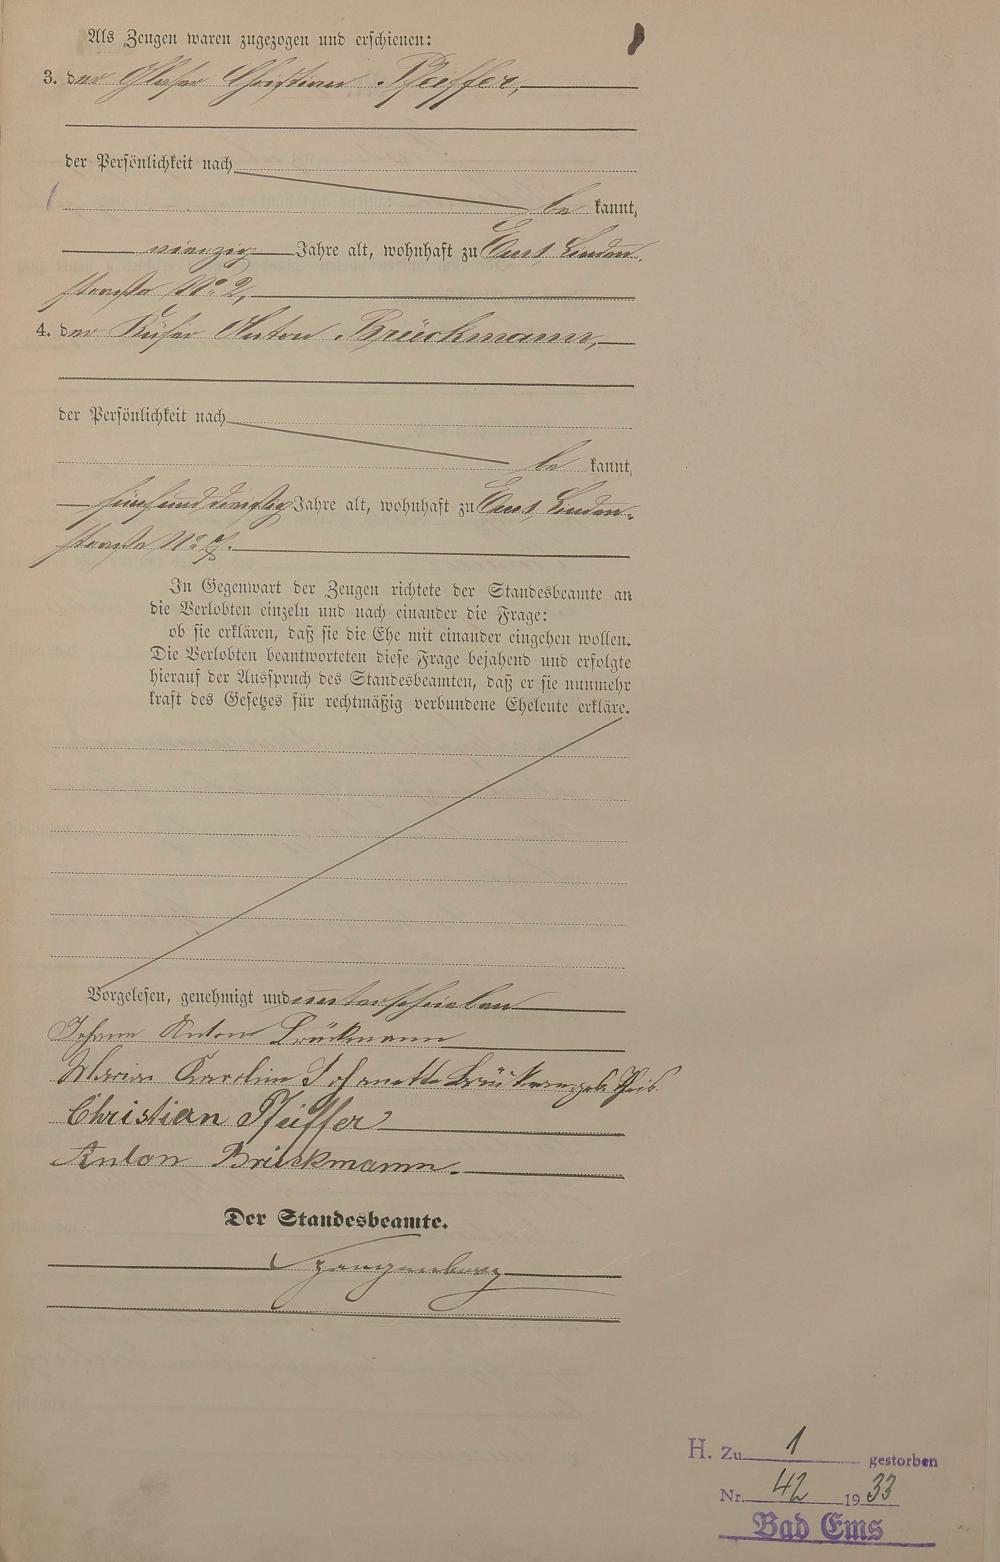 Als Zeugen waren zugezogen und erschienen:
3. der Glaser Christian Pfeiffer,
der Persönlichkeit nach
be kannt,
vierzig Jahre alt, wohnhaft zu Ems, Linden-
straße No 2,
4. der Küfer Anton Brückmann,
der Persönlichkeit nach
be kannt,
fünfunddreißig Jahre alt, wohnhaft zu Ems, Linden-
straße No 7.
In Gegenwart der Zeugen richtete der Standesbeamte an
die Verlobten einzeln und nach einander die Frage:
ob sie erklären, daß sie die Ehe mit einander eingehen wollen.
Die Verlobten beantworteten diese Frage bejahend und erfolgte
hierauf der Ausspruch des Standesbeamten, daß er sie nunmehr
kraft des Gesetzes für rechtmäßig verbundene Eheleute erkläre.
Vorgelesen, genehmigt und unterschrieben
Johann Anton Brückmann
Maria Karoline Johanette Brückmann geb.
Christian Pfeiffer
Anton Brückmann.
Der Standesbeamte.
H. Zu 1 gestorben
Nr. 42 1933
Bad Ems